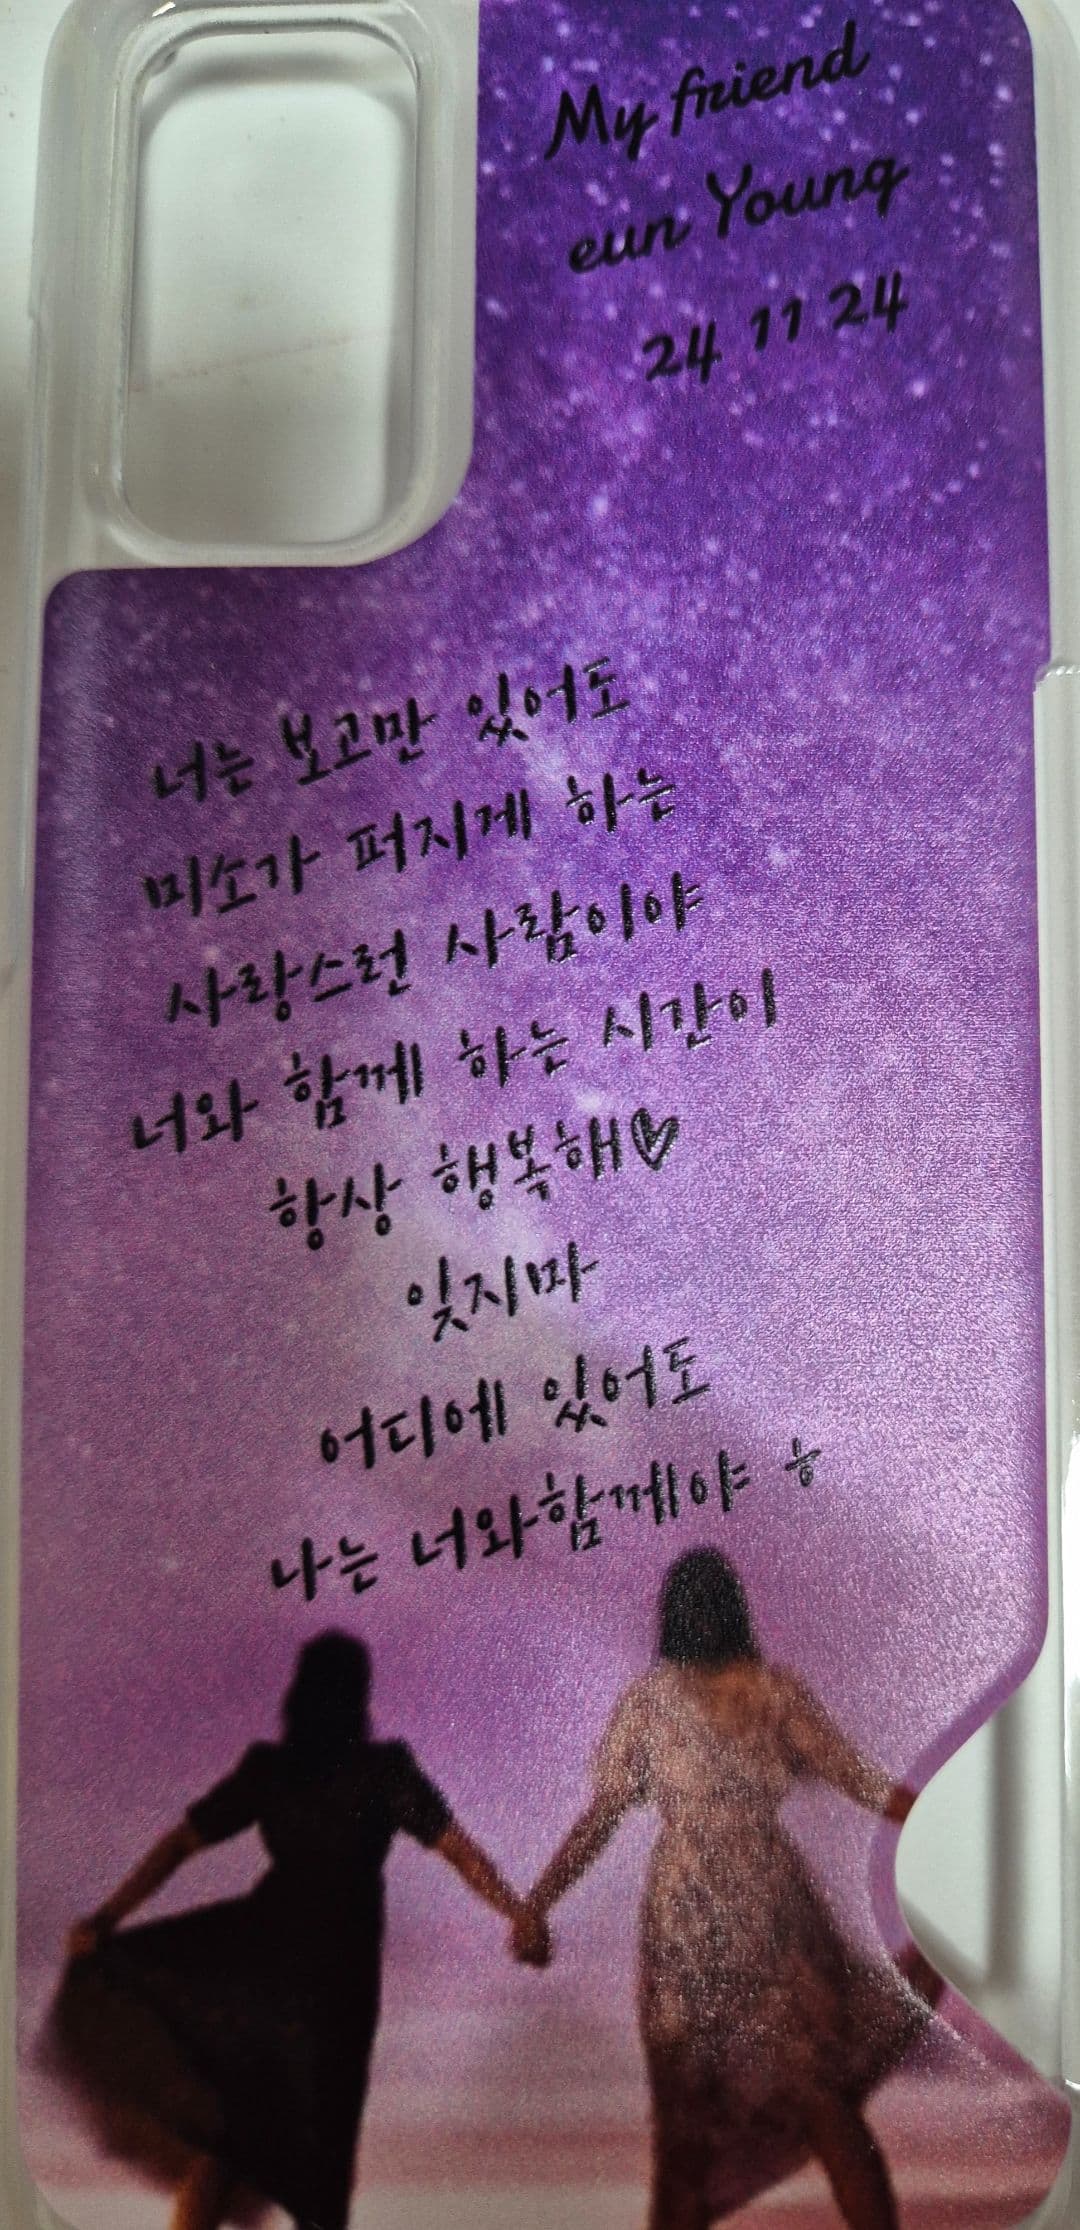 My friend
eun Young
24 11 24
너는 보고만 있어도
미소가 퍼지게 하는
사랑스런 사람이야
너와 함께 하는 시간이
항상 행복해♡
잊지마
어디에 있어도
나는 너와함께야 ㅎ